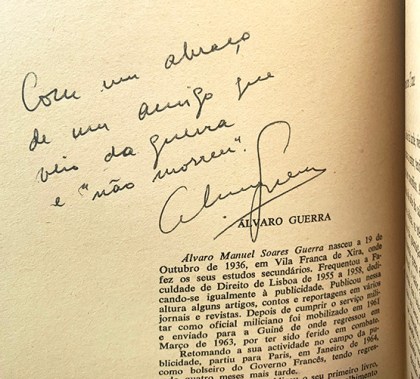 Com um abraço
de um amigo que
veio da guerra
e "não morreu".
ÁLVARO GUERRA
Álvaro Manuel Soares Guerra nasceu a 19 de
Outubro de 1936, em Vila Franca de Xira, onde
fez os seus estudos secundários. Frequentou a Fa-
culdade de Direito de Lisboa de 1955 a 1958, dedi-
cando-se igualmente à publicidade. Publicou nessa
altura alguns artigos, contos e reportagens em vários
jornais e revistas. Depois de cumprir o serviço mili-
tar como oficial miliciano foi mobilizado em 1961
e enviado para a Guiné de onde regressou em
Março de 1963, por ter sido ferido em combate.
Retomando a sua actividade no campo da pu-
blicidade, partiu para Paris, em Janeiro de 1964,
como bolseiro do Governo Francês, tendo regres-
quatro meses mais tarde.
o seu primeiro livro,